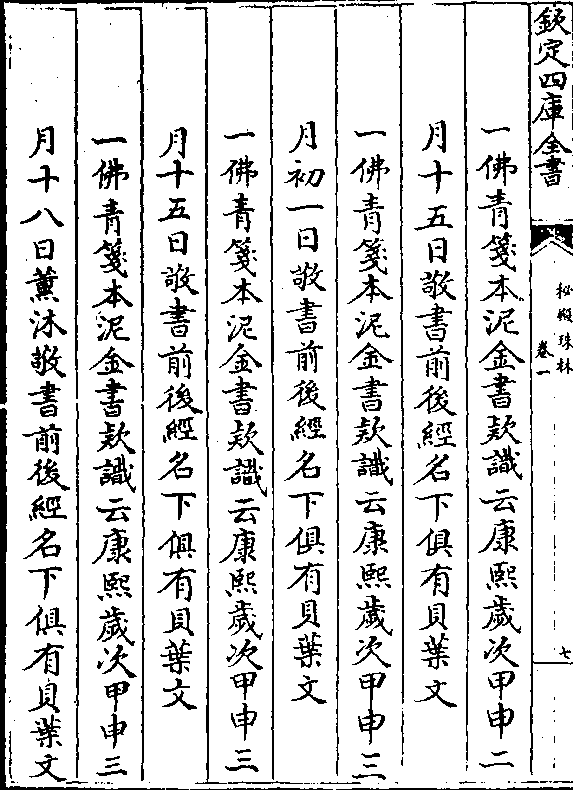 欽定四庫全書
秘殿珠林
卷一
七
一佛青箋本泥金書款識云康熙歲次甲申二
月十五日敬書前後經名下俱有貝葉文
一佛青箋本泥金書款識云康熙歲次甲申三
月初一日敬書前後經名下俱有貝葉文
一佛青箋本泥金書款識云康熙歲次甲申三
月十五日敬書前後經名下俱有貝葉文
一佛青箋本泥金書款識云康熙歲次甲申三
月十八日薰沐敬書前後經名下俱有貝葉文